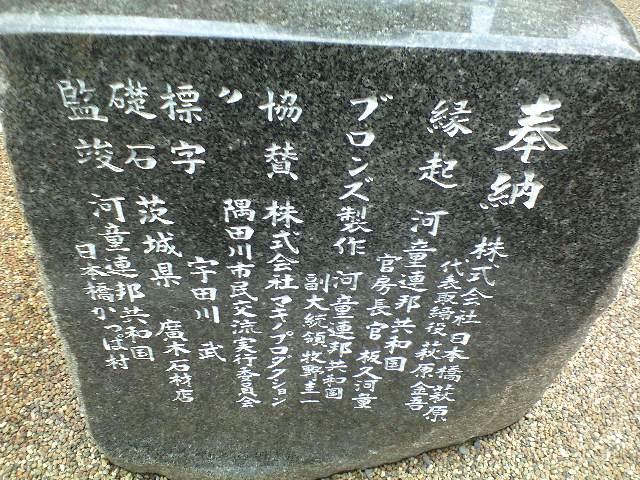 奉納 株式会社日本橋萩原
代表取締役 萩原金吾
縁起 河童連邦共和国
官房長官 坂久河童
ブロンズ製作 河童連邦共和国
副大統領牧野圭一
協賛 株式会社マキノプロダクション
〃 隅田川市民交流実行委員会
標字 宇田川 武
礎石 茨城県 廣木石材店
監竣 河童連邦共和国
日本橋かっぱ村